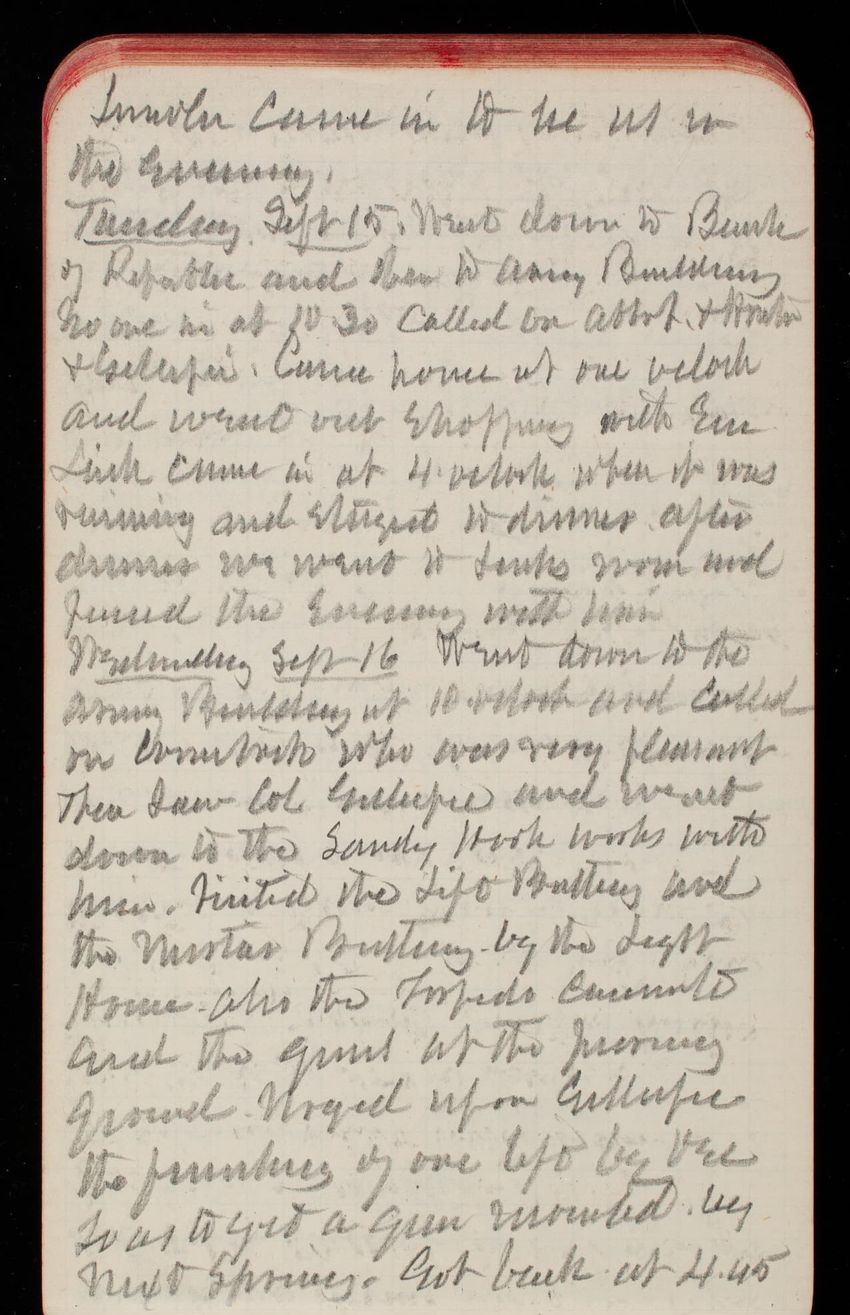 Lincoln came in to see us in
the Evening.
Tuesday Sept 15. Went down to Bank
of Republic and then to army Building
No one in at 10 30 Called on Abbot. &
& Gillespie. Came home at one oclock
and went out Shopping with Em
Link came in at 4 oclock when it was
raining and stayed to dinner after
dinner we went to Links room and
passed the Evening with him
Wednesday Sept 16 Went down to the
army Building at 10 oclock and called
on Comstock who was very pleasant
Then Saw Col Gillespie and went
down to the Sandy Hook works with
him. Visited the Lift Battery and
the Mortar Battery by the Light
House also the Torpedo Casemate
and the guns at the proving
ground Urged upon Gillespie
the finishing of one lift by Dec
So as to get a gun mounted by
Next Spring. Got back at 4.45